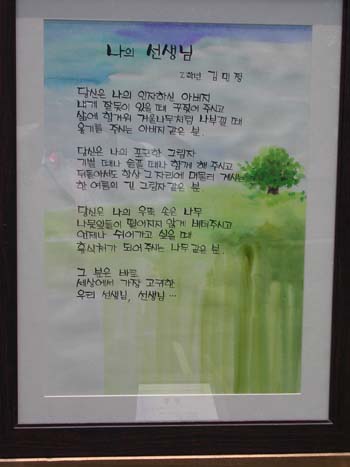 나의 선생님
2학년 김민정
당신은 나의 인자하신 아버지
내게 잘못이 있을 때 꾸짖어 주시고
삶에 힘겨워 겨울나무처럼 나부낄 때
용기를 주시는 아버지 같은 분.
당신은 나의 포근한 그림자
기쁠 때나 슬플 때나 함께 해 주시고
뒤돌아서도 항상 그 자리에 머물러 계시는
한 여름의 긴 그림자 같은 분.
당신은 나의 우뚝 솟은 나무
나뭇잎들이 떨어지지 않게 버텨주시고
언제나 쉬어가고 싶을 때
휴식처가 되어주시는 나무 같은 분.
그 분은 바로
세상에서 가장 고귀한
우리 선생님, 선생님 …